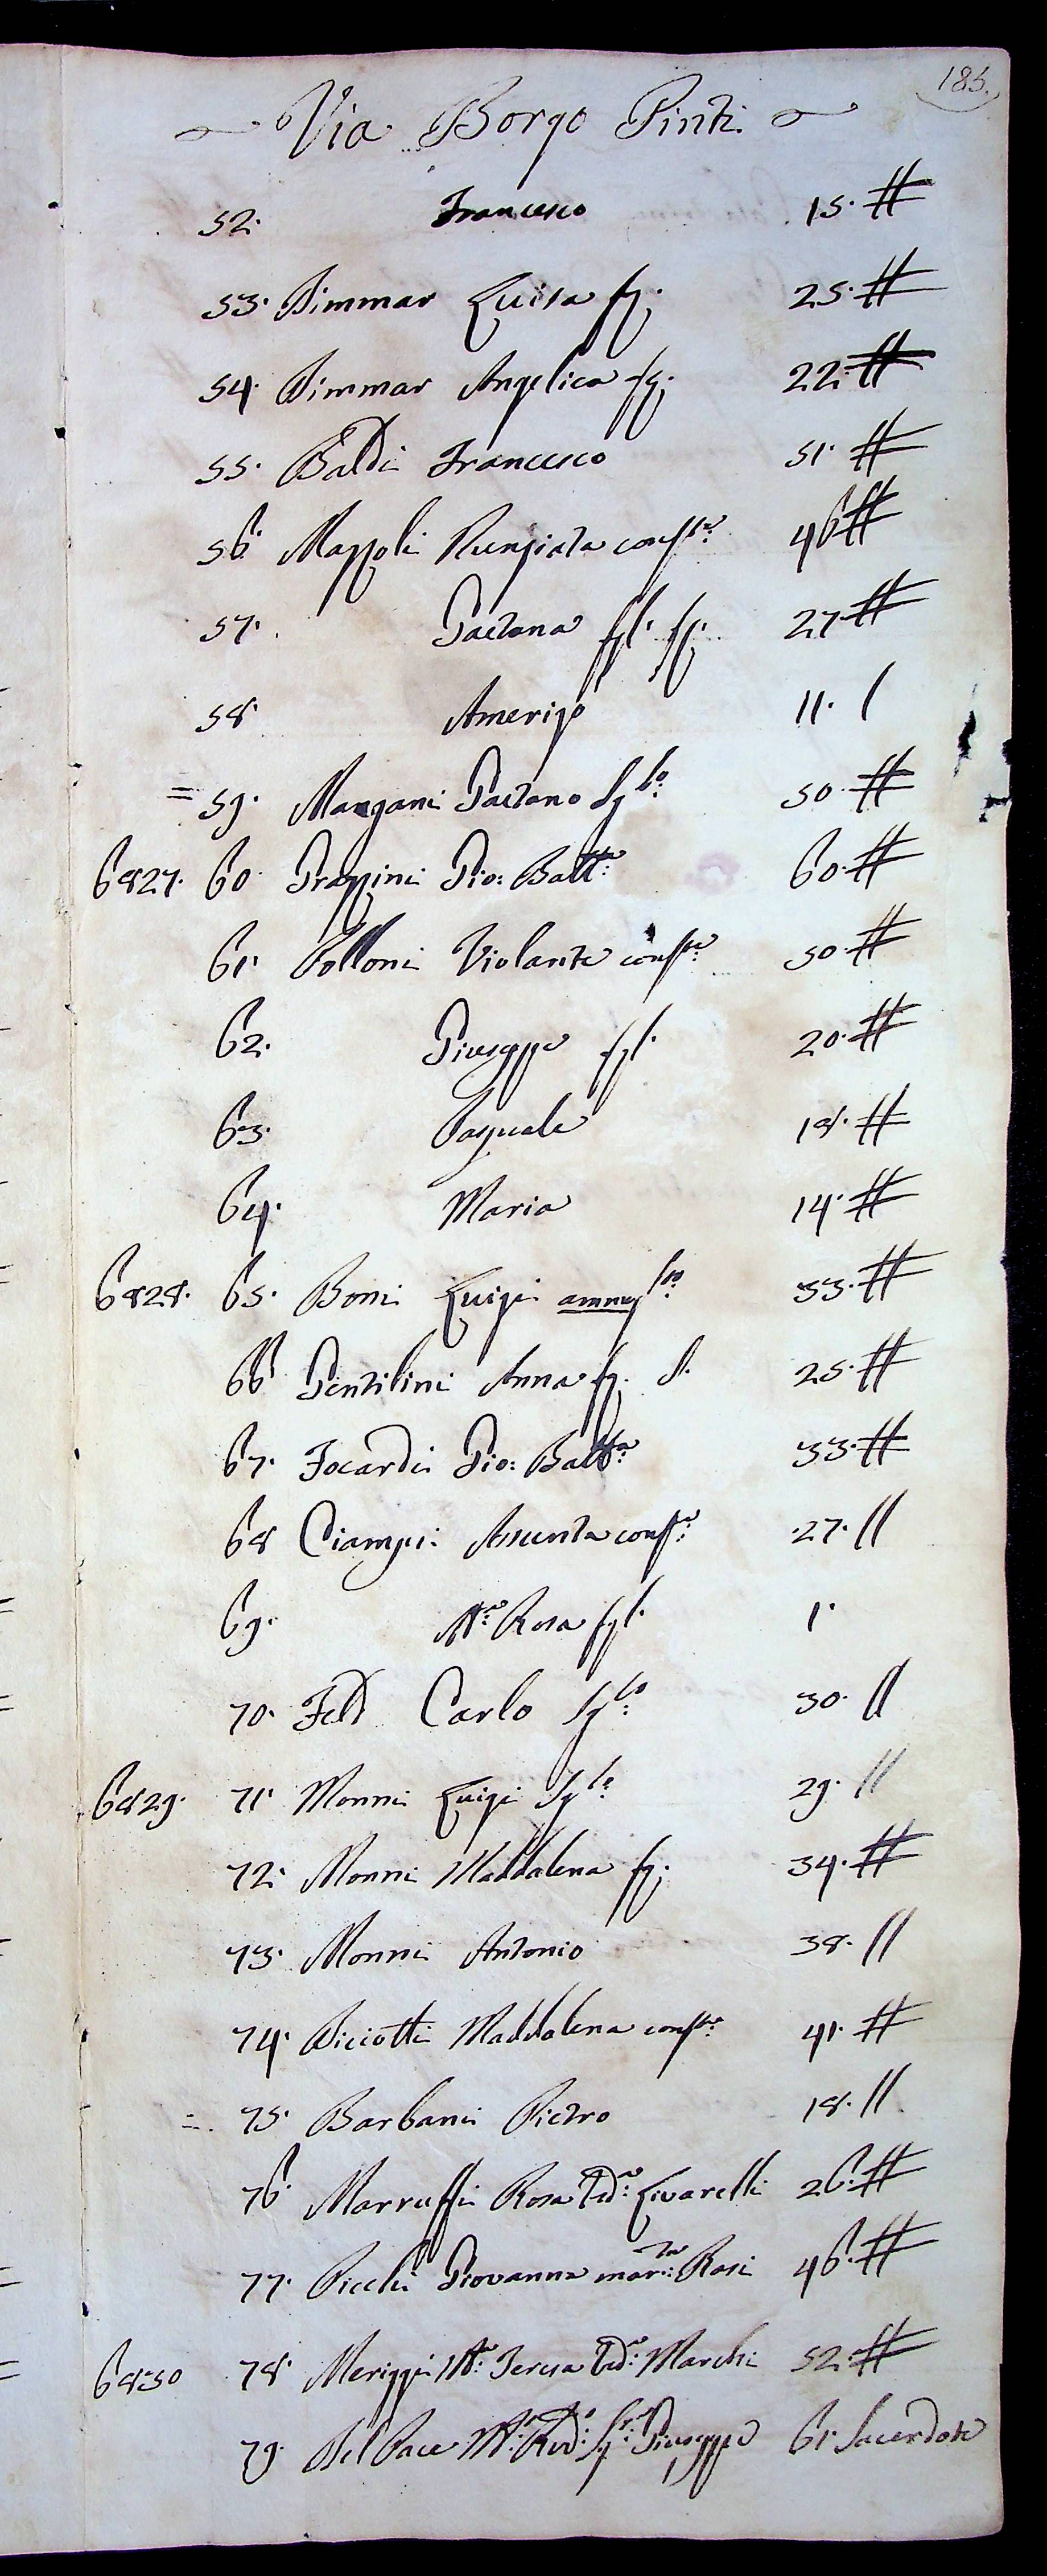 185.
Via Borgo Pinti
52. Francesco 15. #
53. Dimmar Luisa fg. 25. #
54. Dimmar Angelica fg. 22. #
55. Baldi Francesco 51. #
56. Mazzoli Nunziata consrte 46 #
57. Gaetana fgl. fg. 27. #
58. Amerigo 11. /
= 59. Mangani Gaetano Sglo. 50. #
6827. 60. Grazzini Gio: Batta. 60. #
61. Polloni Violante consrte 50. #
62. Giuseppe fgl. 20. #
63. Pasquale 18. #
64. Maria 14. #
6828. 65. Boni Luigi 33. #
66 Gentilini Anna fg. S. 25. #
67. Focardi Gio: Batta. 33. #
68 Ciampi Assunta 27. //
69. Ma. Rosa fgl. 1.
70. Carlo Sglo. 30. //
6829. 71. Monni Luigi Sglo. 29. //
72. Monni Maddalena fg. 34. #
73. Monni Antonio 38. //
74. Maddalena consrte 41. #
=. 75. Barbani Pietro 18. //
76. Marruffi Rosa Vda. Livarelli 26. #
77. Picchi Giovanna marta. Rosi 46. #
6830 78. Meriggi Ma. Teresa Vda. Marchi 52. #
79. Del Pace Mo. Rdo. Sr. Giuseppe 61. Sacerdote